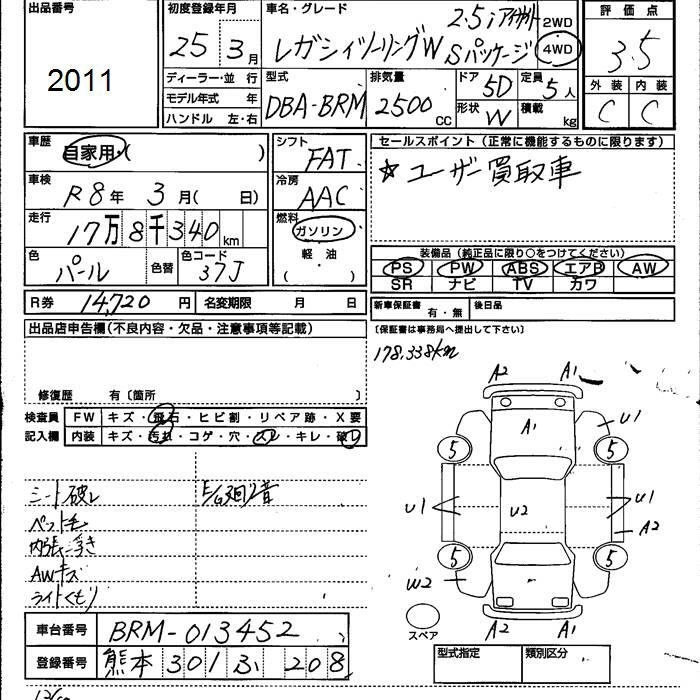 出品番号
2011
初度登録年月
25 3月
車名・グレード
2.5i アイサイト
レガシィツーリングW Sパッケージ
2WD
4WD
評価点
3.5
外装 内装
C C
ディーラー・並 行
モデル年式 年
ハンドル 左・右
型式
DBA-BRM
排気量
2500
CC
ドア 5D
形状 W
定員 5人
積載 kg
車歴
自家用・( )
車検
R8年 3月( 日)
走行
17万8千340km
色
パール
色替
色コード
37J
シフト
FAT
冷房
AAC
燃料
ガソリン
軽・油
( )
セールスポイント(正常に機能するものに限ります)
☆ユーザー買取車
装備品(純正品に限り○をつけてください)
PS PW ABS エアB AW
SR ナビ TV カワ
R券 14,720円
名変期限 月 日
新車保証書 有・無
後日品
(保証書は事務局へ提出して下さい)
178.338km
出品店申告欄(不良内容・欠品・注意事項等記載)
修復歴 有〔箇所 〕
検査員
記入欄
FW キズ・飛石・ヒビ割・リペア跡・X要
内装 キズ・汚れ・コゲ・穴・スレ・キレ・破レ
シート破レ
E/G廻リ音
ペット毛
内張ニ浮き
AWキズ
ライトくもり
A2 A1
A1
U1
5 5
U1 U2 U1
A2
5 5
W2
A2 A1
スペア
車台番号 BRM-013452
登録番号 熊本 301 ふ 208
型式指定 類別区分